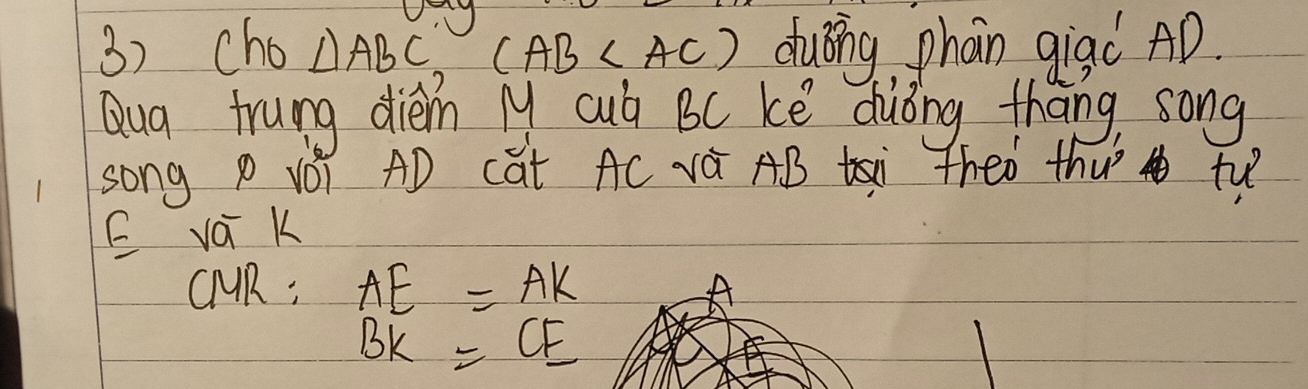 3) Cho ΔABC (AB < AC) đường phân giác AD.
Qua trung điểm M của BC kẻ đường thẳng song
song với AD cắt AC và AB theo thứ tự
E và K
CMR: AE = AK
BK = CE
A
E